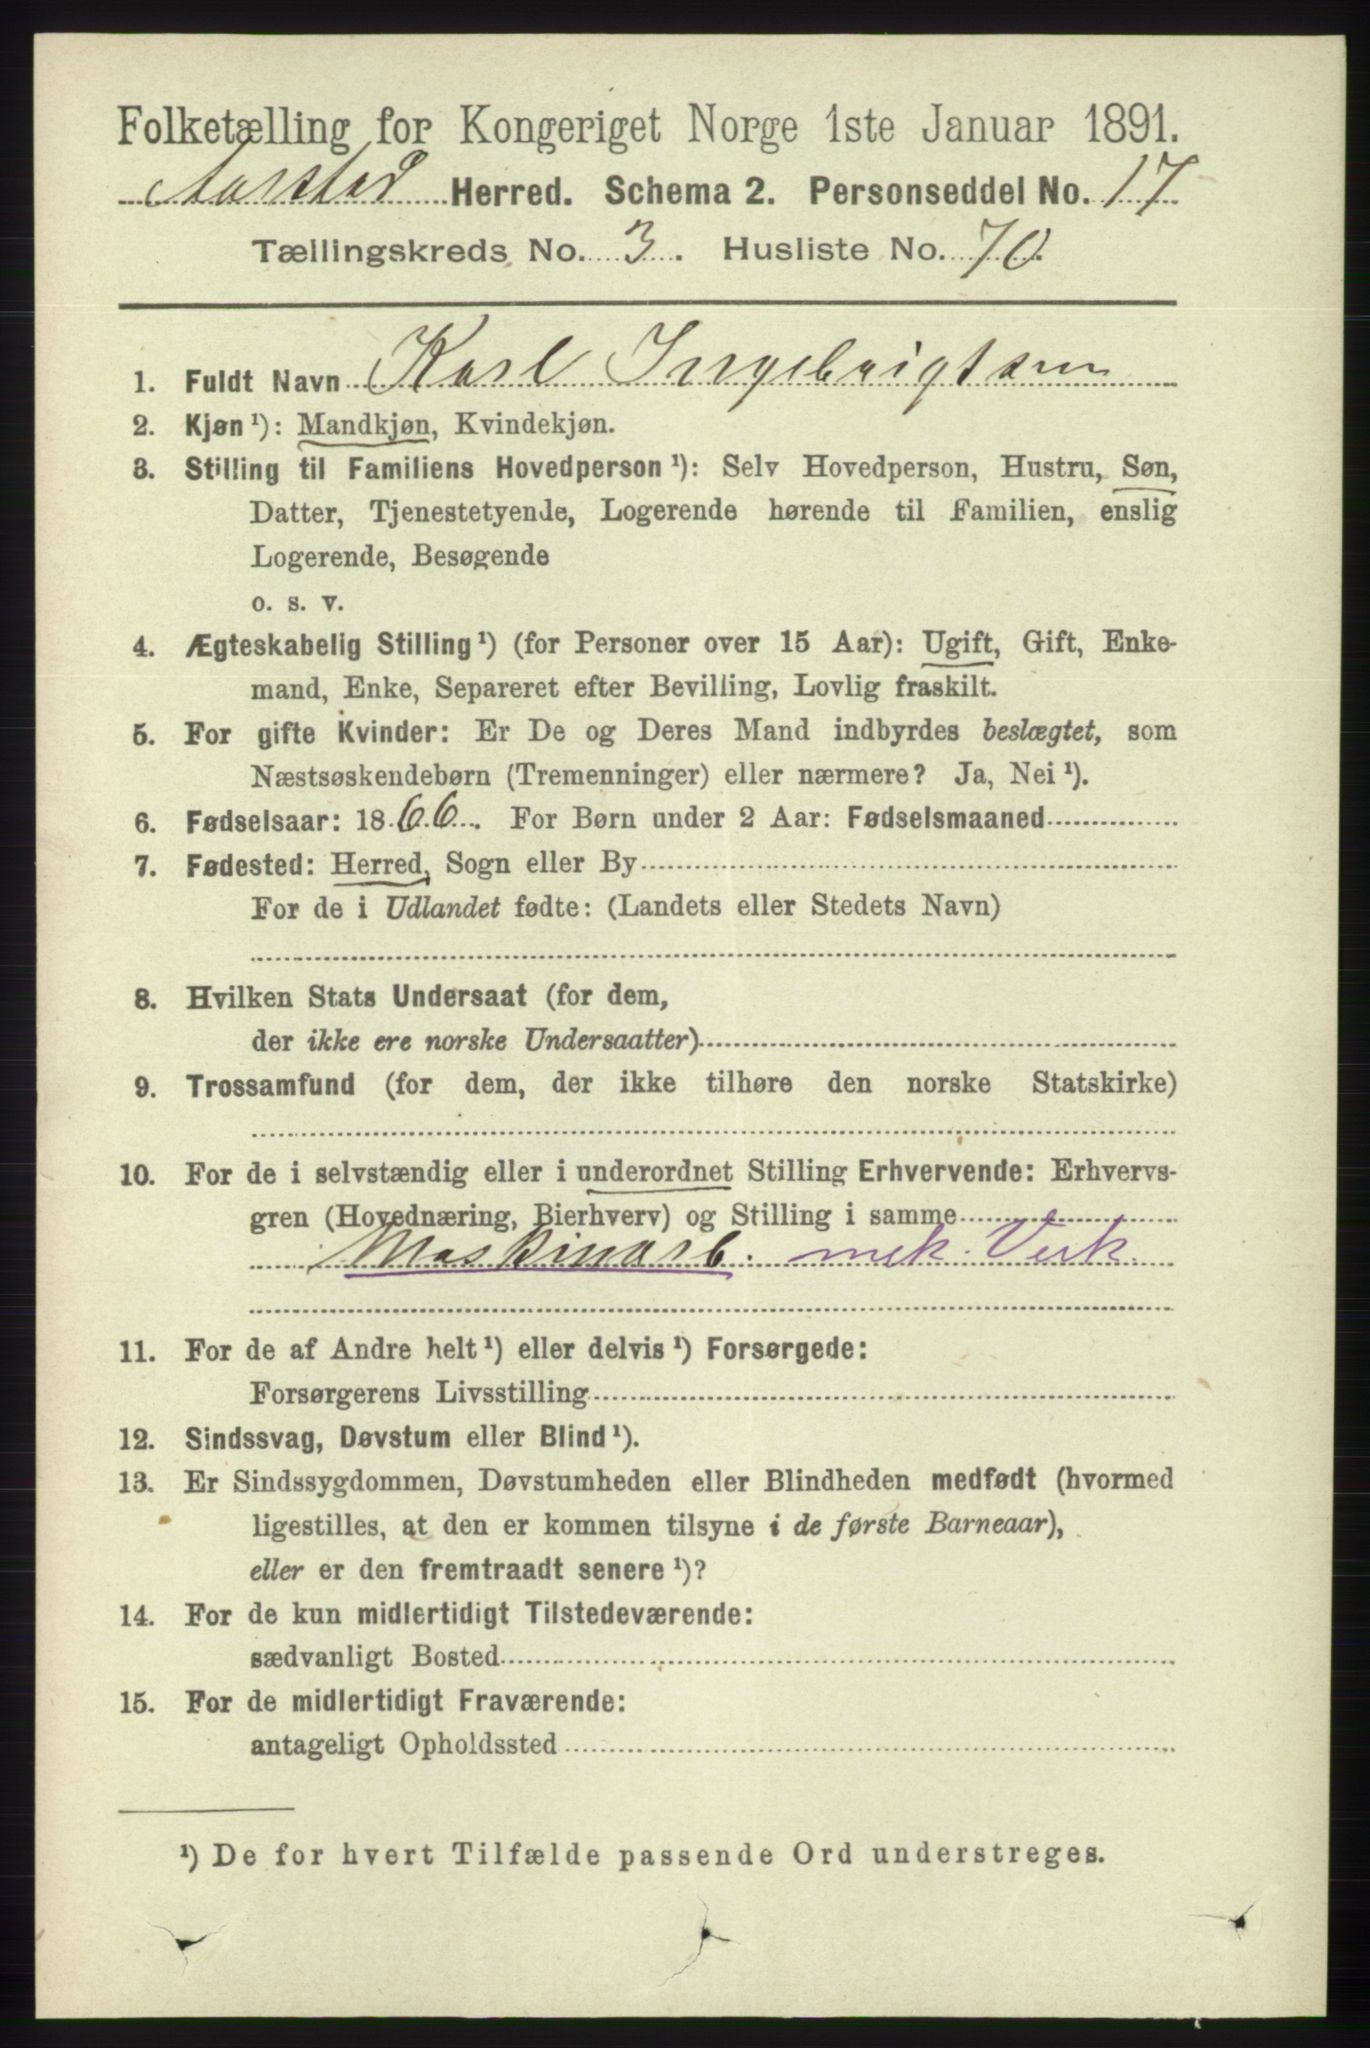 Folketælling for Kongeriget Norge 1ste Januar 1891.
Aarstad Herred. Schema 2. Personseddel No. 17
Tællingskreds No. 3. Husliste No. 70.
1. Fuldt Navn Karl Ingebrigtsen
2. Kjøn ¹): Mandkjøn, Kvindekjøn.
3. Stilling til Familiens Hovedperson ¹): Selv Hovedperson, Hustru, Søn,
Datter, Tjenestetyende, Logerende hørende til Familien, enslig
Logerende, Besøgende
o. s. v.
4. Ægteskabelig Stilling ¹) (for Personer over 15 Aar): Ugift, Gift, Enke-
mand, Enke, Separeret efter Bevilling, Lovlig fraskilt.
5. For gifte Kvinder: Er De og Deres Mand indbyrdes beslægtet, som
Næstsøskendebørn (Tremenninger) eller nærmere? Ja, Nei ¹).
6. Fødselsaar: 1866. For Børn under 2 Aar: Fødselsmaaned
7. Fødested: Herred, Sogn eller By
For de i Udlandet fødte: (Landets eller Stedets Navn)
8. Hvilken Stats Undersaat (for dem,
der ikke ere norske Undersaatter)
9. Trossamfund (for dem, der ikke tilhøre den norske Statskirke)
10. For de i selvstændig eller i underordnet Stilling Erhvervende: Erhvervs-
gren (Hovednæring, Bierhverv) og Stilling i samme
Maskinarb. mek. Verk.
11. For de af Andre helt ¹) eller delvis ¹) Forsørgede:
Forsørgerens Livsstilling
12. Sindssvag, Døvstum eller Blind ¹).
13. Er Sindssygdommen, Døvstumheden eller Blindheden medfødt (hvormed
ligestilles, at den er kommen tilsyne i de første Barneaar),
eller er den fremtraadt senere ¹)?
14. For de kun midlertidigt Tilstedeværende:
sædvanligt Bosted
15. For de midlertidigt Fraværende:
antageligt Opholdssted
¹) De for hvert Tilfælde passende Ord understreges.